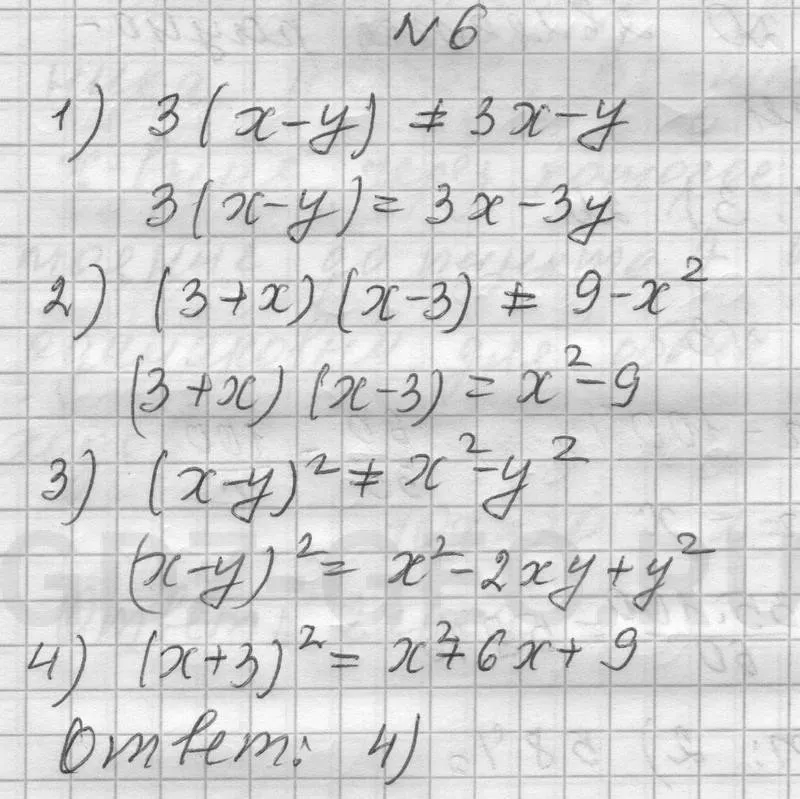 №6
1) 3(x-y) ≠ 3x-y
3(x-y) = 3x-3y
2) (3+x)(x-3) ≠ 9-x²
(3+x)(x-3) = x²-9
3) (x-y)² ≠ x²-y²
(x-y)² = x²-2xy+y²
4) (x+3)² = x²+6x+9
Ответ: 4)